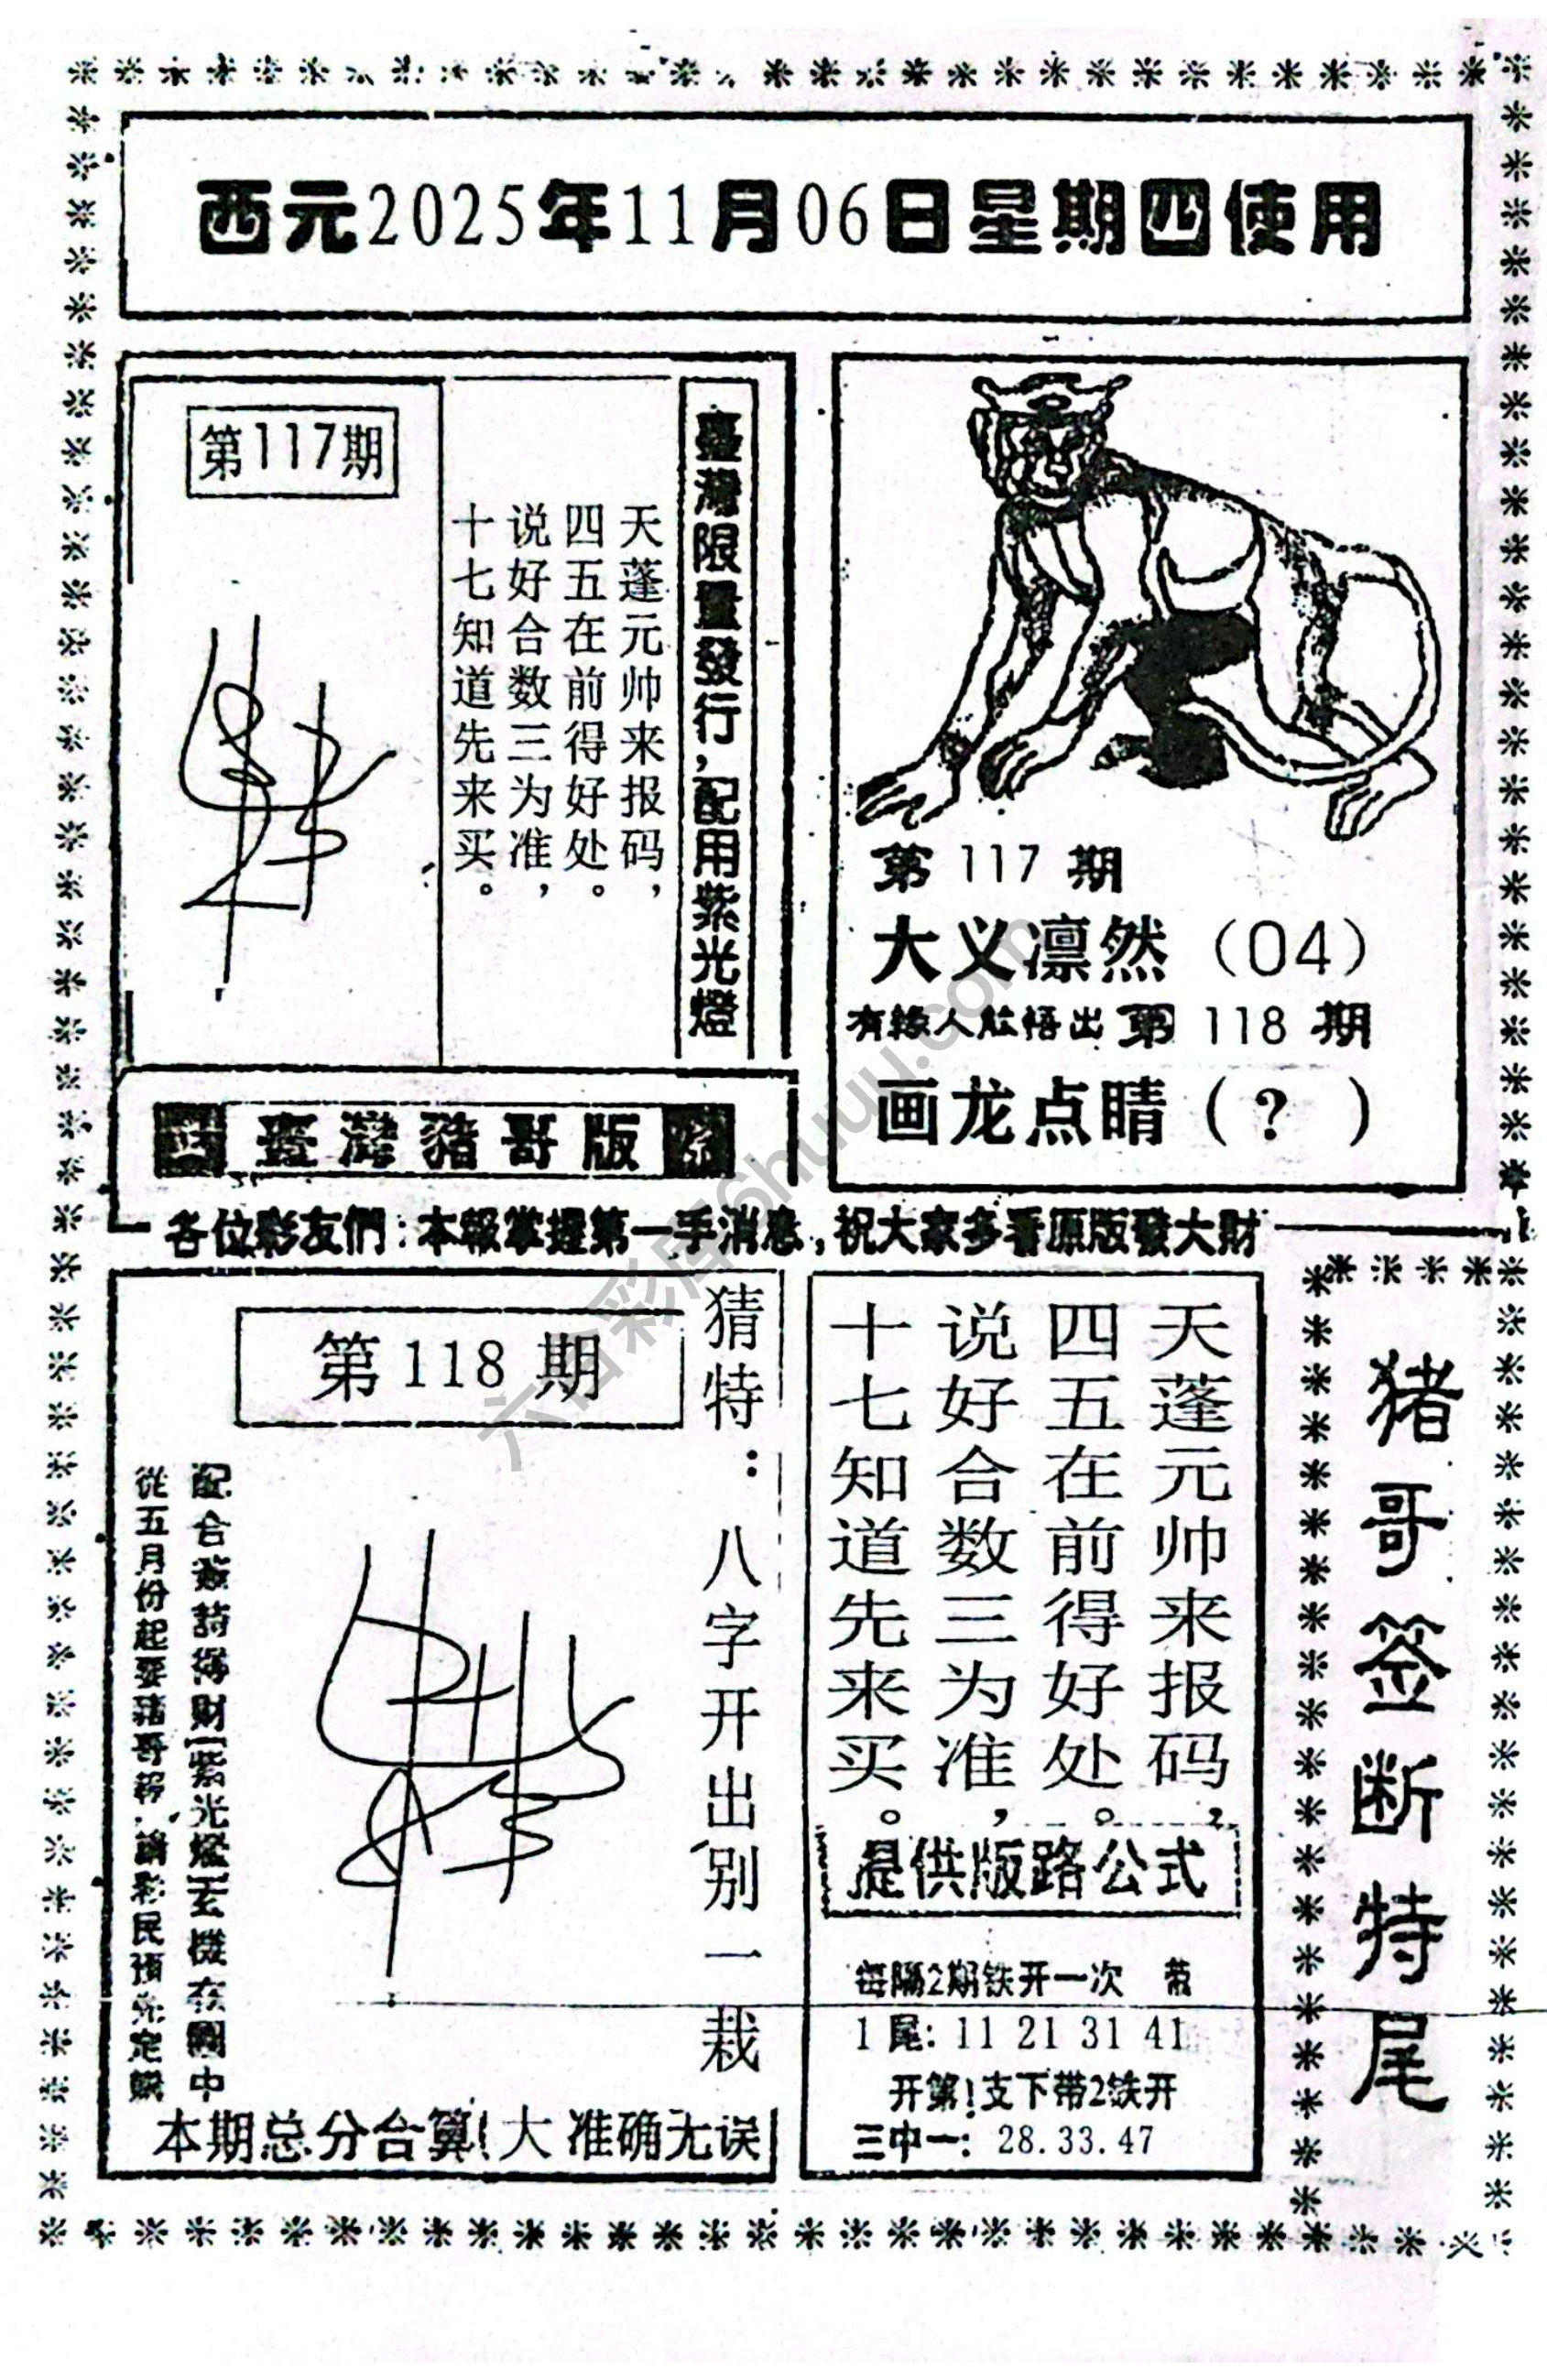 西元2025年11月06日星期四使用
第117期
天蓬元帅来报码，
四五在前得好处。
说好合数三为准，
十七知道先来买。
臺灣限量發行，配用紫光燈
臺灣豬哥版
第 117 期
大义凛然（04）
有緣人 悟出 第 118 期
画龙点睛（？）
各位彩友們：本報掌握第一手消息，祝大家多看原版發大財
第 118 期
猜特：八字开出别一栽
配合 得財 紫光燈 玄機在圖中
從五月份起要豬哥 彩民預先定購
本期总分合算！大 准确无误
天蓬元帅来报码，
四五在前得好处。
说好合数三为准，
十七知道先来买。
提供版路公式
每隔2期铁开一次 带
1 尾：11 21 31 41
开第！支下带2铁开
三中一：28.33.47
猪哥签断特尾
六合彩库6huuu.com